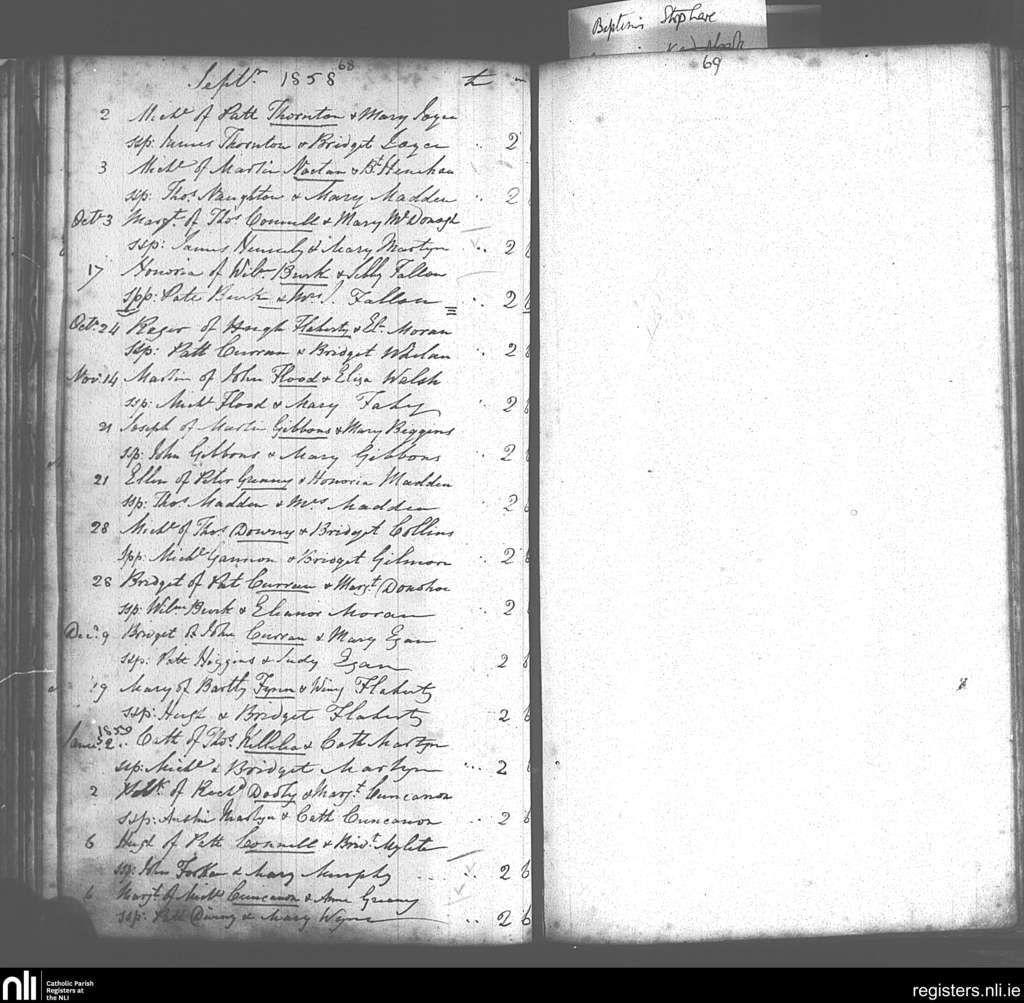 Baptisms
68
Septr. 1858
69
2 Michl of Patt Thornton & Mary Joyce
ssp: James Thornton & Bridget Joyce 2
3 Michl of Martin Noctan & Bt Henehan
sp: Thos Naughton & Mary Madden 2
Octr 3 Margt. of Thos Connell & Mary McDonagh
ssp: James & Mary Martyn 2
17 Honoria of Willm Burk & Fallon
spp: Patt Burk & Mrs J. Fallon 2
Octr 24 Roger of Hugh Flaherty & Moran
ssp: Patt Curran & Bridget Whelan 2
Nov: 14 Martin of John Flood & Eliza Walsh
ssp: Michl Flood & Mary Fahy 2
21 Joseph of Martin Gibbons & Mary Biggins
sp: John Gibbons & Mary Gibbons 2
21 Ellen of Peter Greany & Honoria Madden
ssp: Thos Madden & Mrs Madden 2
28 Michl of Thos Downy & Bridget Collins
spp: Michl Gannon & Bridget Gilmore 2
28 Bridget of Pat Curran & Margt. Donohoe
ssp: Willm Burk & Eleanor Moran 2
Decr. 9 Bridget of John Curran & Mary Egan
ssp: Patt Higgins & Judy Egan 2
19 Mary of Bartly Fynn & Winy Flaherty
ssp: Hugh & Bridget Flaherty 2 6
1859
2 Cath of Thos. Killilea & Cath Martyn
ssp: Michl & Bridget Martyn 2 6
2 of Richd Dooly & Margt. Cuncanon
ssp: Austin Martyn & Cath Cuncanon 2 6
6 Hugh of Patt Connell & Bridt. Mylete
ssp: John & Mary Murphy 2 6
6 Margt. of Michl Cuncanon & Anne Greany
ssp: Patt Downy & Mary Wynne 2 6
nli
Catholic Parish
Registers at
the NLI
registers.nli.ie